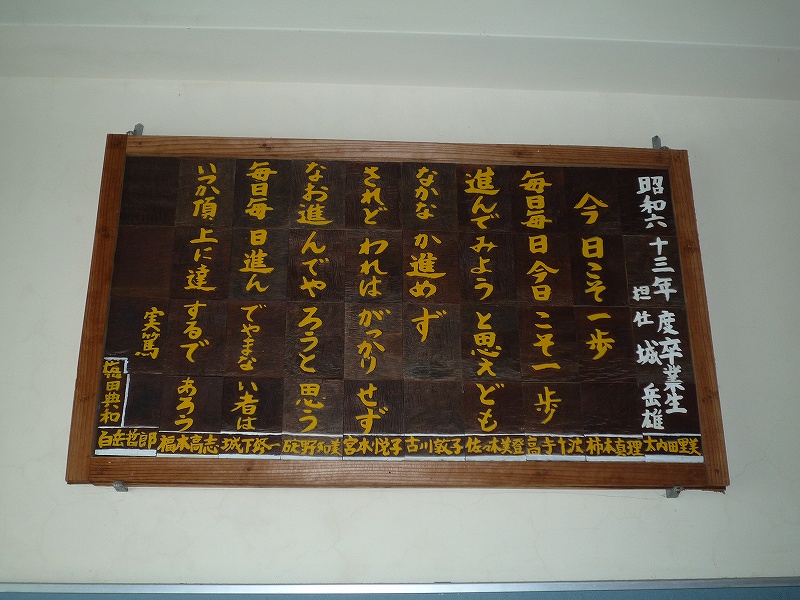 昭和六十三年度卒業生
担任 城 岳雄
今日こそ一歩
毎日毎日今日こそ一歩
進んでみようと思えども
なかなか進めず
されどわれはがっかりせず
なお進んでやろうと思う
毎日毎日進んでやまない者は
いつか頂上に達するであろう
実篤
太内田里美
柿本真理
高寺千波
佐々木美登
古川敦子
宮本悦子
砂野和美
城下修一
福本高志
白岳哲郎
田典和